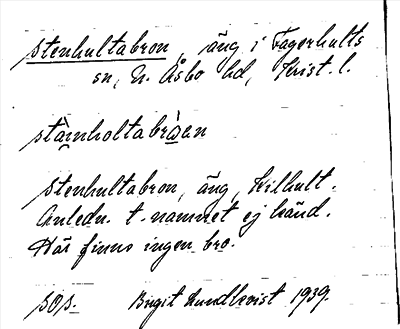 Stenhultabron, äng i Fagerhults
sn, N. Åsbo hd, Krist. l.
stäinholtabrøan
Stenhultabron, äng, Kilhult.
Anledn. t. namnet ej känd.
Här finns ingen bro.
SOS. Birgit Lundkvist 1939.